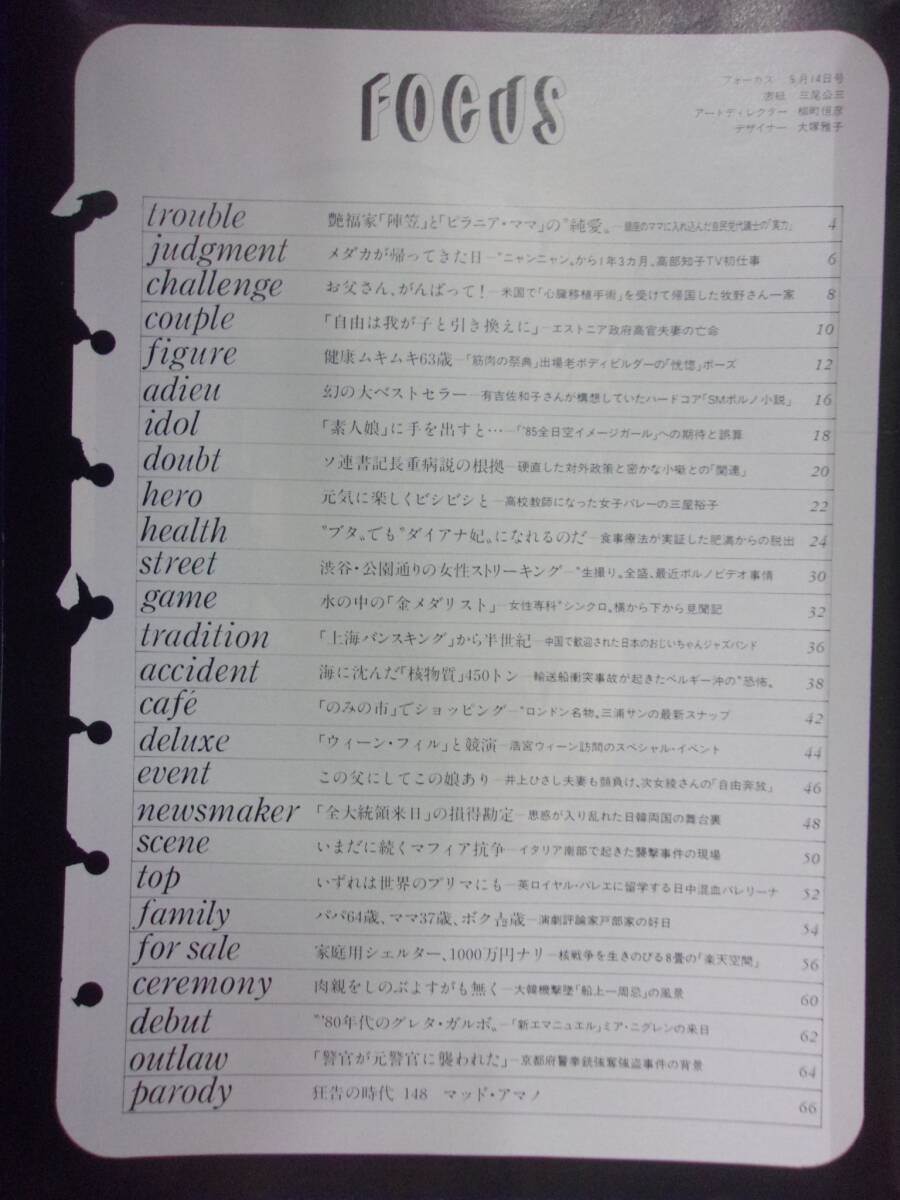 FOCUS
フォーカス 9月14日号
表紙 三尾公三
アートディレクター 柳町恒彦
デザイナー 大塚雅子
trouble 艶福家「陣笠」と「ピラニア・ママ」の〝純愛〟—銀座のママに入れ込んだ自民党代議士の「実力」 4
judgment メダカが帰ってきた日—〝ニャンニャン〟から1年3カ月、高部知子TV初仕事 6
challenge お父さん、がんばって!—米国で「心臓移植手術」を受けて帰国した牧野さん一家 8
couple 「自由は我が子と引き換えに」—エストニア政府高官夫妻の亡命 10
figure 健康ムキムキ63歳—「筋肉の祭典」出場老ボディビルダーの「恍惚」ポーズ 12
adieu 幻の大ベストセラー—有吉佐和子さんが構想していたハードコア「SMポルノ小説」 16
idol 「素人娘」に手を出すと…—「'85全日空イメージガール」への期待と誤算 18
doubt ソ連書記長重病説の根拠—硬直した対外政策と密かな小噺との「関連」 20
hero 元気に楽しくビシビシと—高校教師になった女子バレーの三屋裕子 22
health 〝ブタ〟でも〝ダイアナ妃〟になれるのだ—食事療法が実証した肥満からの脱出 24
street 渋谷・公園通りの女性ストリーキング—〝生撮り〟全盛、最近ポルノビデオ事情 30
game 水の中の「金メダリスト」—女性専科〝シンクロ〟横から下から見聞記 32
tradition 「上海バンスキング」から半世紀—中国で歓迎された日本のおじいちゃんジャズバンド 36
accident 海に沈んだ「核物質」450トン—輸送船衝突事故が起きたベルギー沖の〝恐怖〟 38
café 「のみの市」でショッピング—〝ロンドン名物〟三浦サンの最新スナップ 42
deluxe 「ウィーン・フィル」と競演—浩宮ウィーン訪問のスペシャル・イベント 44
event この父にしてこの娘あり—井上ひさし夫妻も顔負け、次女綾さんの「自由奔放」 46
newsmaker 「全大統領来日」の損得勘定—思惑が入り乱れた日韓両国の舞台裏 48
scene いまだに続くマフィア抗争—イタリア南部で起きた襲撃事件の現場 50
top いずれは世界のプリマにも—英ロイヤル・バレエに留学する日中混血バレリーナ 52
family パパ64歳、ママ37歳、ボク 歳—演劇評論家戸部家の好日 54
for sale 家庭用シェルター、1000万円ナリ—核戦争を生きのびる8畳の「楽天空間」 56
ceremony 肉親をしのぶよすがも無く—大韓機撃墜「船上一周忌」の風景 60
debut 〝'80年代のグレタ・ガルボ〟—「新エマニュエル」ミア・ニグレンの来日 62
outlaw 「警官が元警官に襲われた」—京都府警拳銃強奪強盗事件の背景 64
parody 狂告の時代 148 マッド・アマノ 66